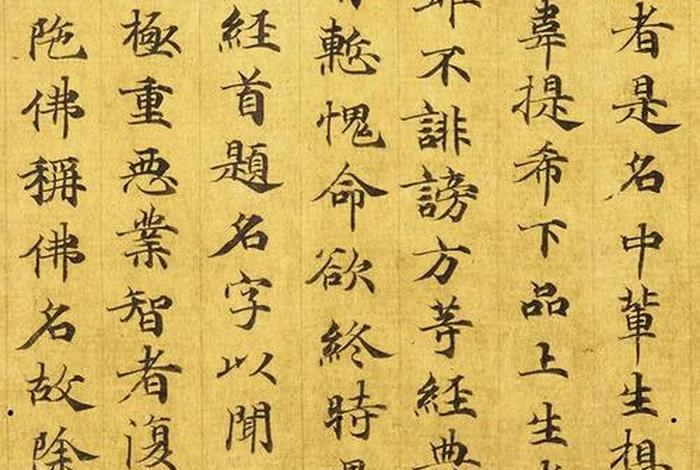 者是名中輩生想
韋提希下品上生
不誹謗方等經典
慙愧命欲終時
經首題名字以聞
極重惡業智者復
陁佛稱佛名故除